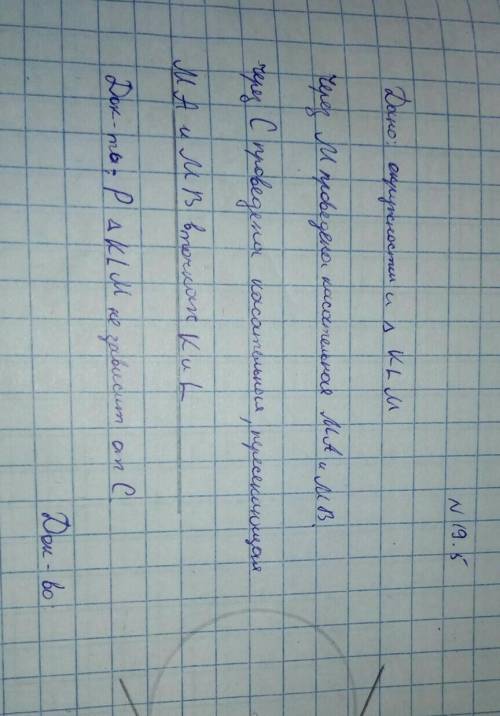 N 19.5
Дано: окружности и Δ KLM
Через M проведена касательная MA и MB.
Через C проведена касательная, пересекающая
MA и MB в точках K и L
Док-ть: P Δ KLM не зависит от C
Док-во: